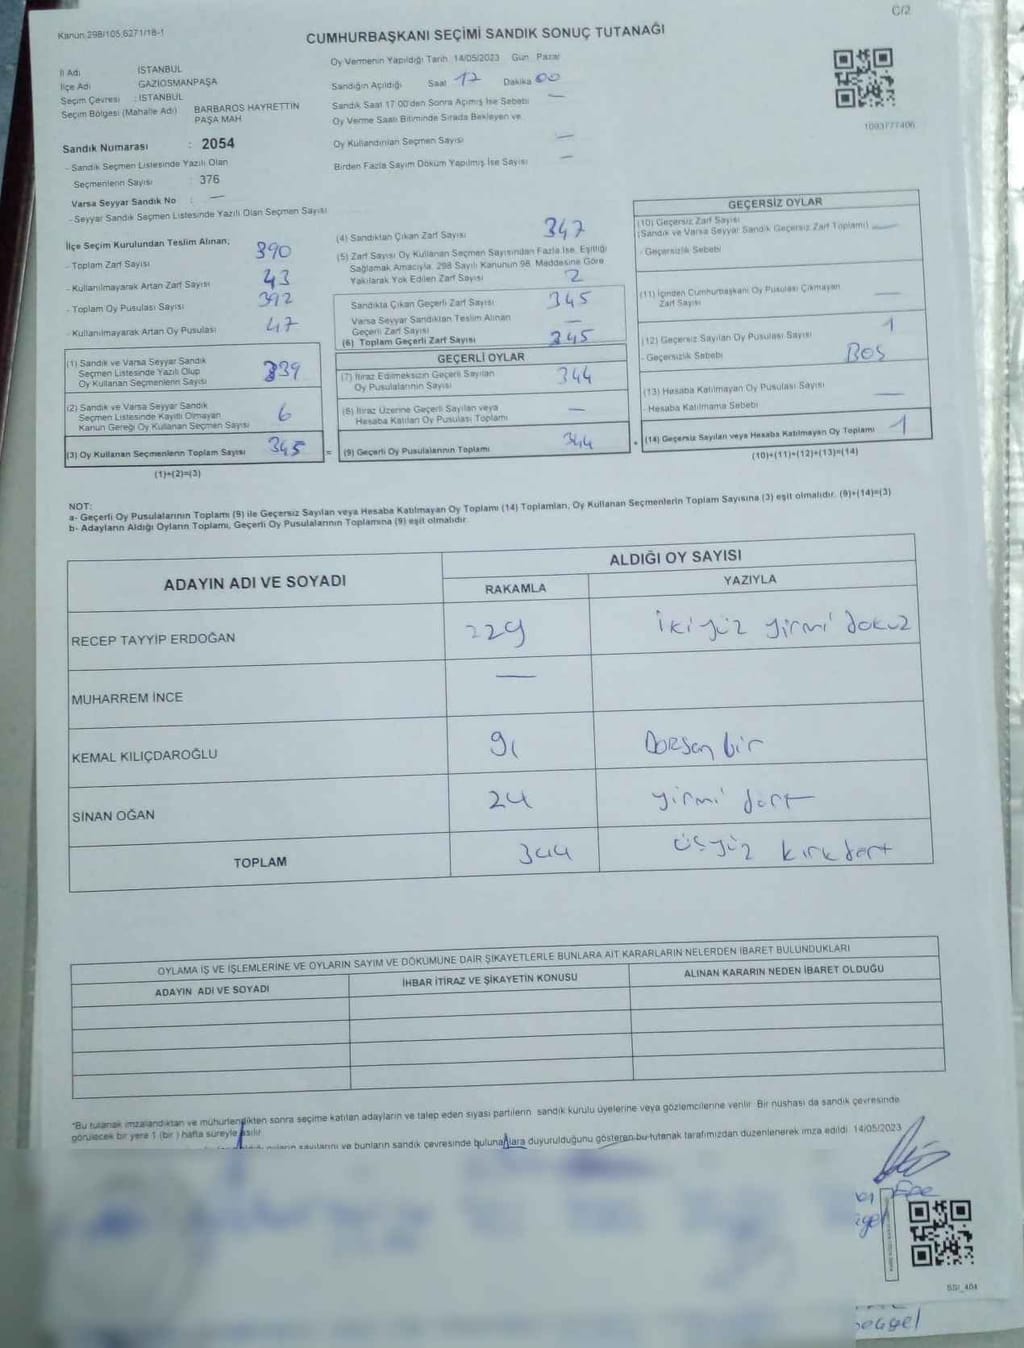 C/2
Kanun 298/105,6271/18-1
CUMHURBAŞKANI SEÇİMİ SANDIK SONUÇ TUTANAĞI
İl Adı İSTANBUL
İlçe Adı GAZİOSMANPAŞA
Seçim Çevresi : İSTANBUL
Seçim Bölgesi (Mahalle Adı) BARBAROS HAYRETTİN PAŞA MAH
Sandık Numarası : 2054
- Sandık Seçmen Listesinde Yazılı Olan
Seçmenlerin Sayısı 376
Varsa Seyyar Sandık No : —
- Seyyar Sandık Seçmen Listesinde Yazılı Olan Seçmen Sayısı
Oy Vermenin Yapıldığı Tarih 14/05/2023 Gün Pazar
Sandığın Açıldığı Saat 17 Dakika 00
Sandık Saat 17.00'den Sonra Açımış İse Sebebi —
Oy Verme Saati Bitiminde Sırada Bekleyen ve
Oy Kullandırılan Seçmen Sayısı —
Birden Fazla Sayım Döküm Yapılmış İse Sayısı —
1093777406
İlçe Seçim Kurulundan Teslim Alınan;
- Toplam Zarf Sayısı 390
- Kullanılmayarak Artan Zarf Sayısı 43
- Toplam Oy Pusulası Sayısı 392
- Kullanılmayarak Artan Oy Pusulası 47
(1) Sandık ve Varsa Seyyar Sandık
Seçmen Listesinde Yazılı Olup
Oy Kullanan Seçmenlerin Sayısı 339
(2) Sandık ve Varsa Seyyar Sandık
Seçmen Listesinde Kayıtlı Olmayan
Kanun Gereği Oy Kullanan Seçmen Sayısı 6
(3) Oy Kullanan Seçmenlerin Toplam Sayısı 345
(1)+(2)=(3)
(4) Sandıktan Çıkan Zarf Sayısı 347
(5) Zarf Sayısı Oy Kullanan Seçmen Sayısından Fazla İse, Eşitliği
Sağlamak Amacıyla, 298 Sayılı Kanunun 98. Maddesine Göre
Yakılarak Yok Edilen Zarf Sayısı 2
Sandıkta Çıkan Geçerli Zarf Sayısı 345
Varsa Seyyar Sandıktan Teslim Alınan
Geçerli Zarf Sayısı —
(6) Toplam Geçerli Zarf Sayısı 345
GEÇERLİ OYLAR
(7) İtiraz Edilmeksizin Geçerli Sayılan
Oy Pusulalarının Sayısı 344
(8) İtiraz Üzerine Geçerli Sayılan veya
Hesaba Katılan Oy Pusulası Toplamı —
= (9) Geçerli Oy Pusulalarının Toplamı 344
GEÇERSİZ OYLAR
(10) Geçersiz Zarf Sayısı
(Sandık ve Varsa Seyyar Sandık Geçersiz Zarf Toplamı) —
- Geçersizlik Sebebi
(11) İçinden Cumhurbaşkanı Oy Pusulası Çıkmayan
Zarf Sayısı —
(12) Geçersiz Sayılan Oy Pusulası Sayısı 1
- Geçersizlik Sebebi BOŞ
(13) Hesaba Katılmayan Oy Pusulası Sayısı —
- Hesaba Katılmama Sebebi
+ (14) Geçersiz Sayılan veya Hesaba Katılmayan Oy Toplamı 1
(10)+(11)+(12)+(13)=(14)
NOT:
a- Geçerli Oy Pusulalarının Toplamı (9) ile Geçersiz Sayılan veya Hesaba Katılmayan Oy Toplamı (14) Toplamları, Oy Kullanan Seçmenlerin Toplam Sayısına (3) eşit olmalıdır. (9)+(14)=(3)
b- Adayların Aldığı Oyların Toplamı, Geçerli Oy Pusulalarının Toplamına (9) eşit olmalıdır.
ADAYIN ADI VE SOYADI ALDIĞI OY SAYISI
RAKAMLA YAZIYLA
RECEP TAYYİP ERDOĞAN 229 iki yüz yirmi dokuz
MUHARREM İNCE —
KEMAL KILIÇDAROĞLU 91 Doksan bir
SİNAN OĞAN 24 yirmi dört
TOPLAM 344 üçyüz kırkdört
OYLAMA İŞ VE İŞLEMLERİNE VE OYLARIN SAYIM VE DÖKÜMÜNE DAİR ŞİKAYETLERLE BUNLARA AİT KARARLARIN NELERDEN İBARET BULUNDUKLARI
ADAYIN ADI VE SOYADI İHBAR İTİRAZ VE ŞİKAYETİN KONUSU ALINAN KARARIN NEDEN İBARET OLDUĞU
*Bu tutanak imzalandıktan ve mühürlendikten sonra seçime katılan adayların ve talep eden siyasi partilerin sandık kurulu üyelerine veya gözlemcilerine verilir. Bir nüshası da sandık çevresinde
görülecek bir yere 1 (bir ) hafta süreyle asılır.
sayılarını ve bunların sandık çevresinde bulunanlara duyurulduğunu gösteren bu tutanak tarafımızdan düzenlenerek imza edildi. 14/05/2023